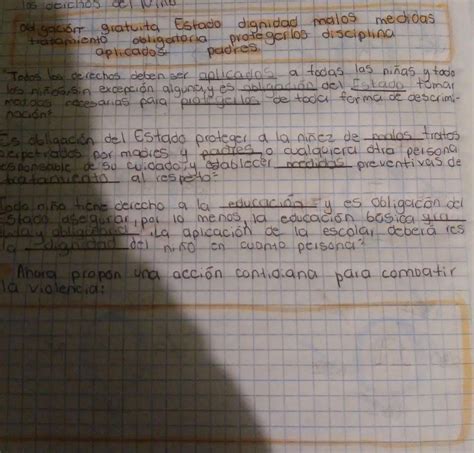 los derechos del Niño
obligación gratuita Estado dignidad malos medidas
tratamiento obligatoria protegerlos disciplina
aplicados padres
"Todos los derechos deben ser aplicados a todas las niñas y todo
los niños sin excepción alguna y es obligación del Estado tomar
medidas necesarias para protegerlos de toda forma de descrimi-
nación"
Es obligación del Estado proteger a la niñez de malos tratos
perpetrados por madres y padres o cualquiera otra persona
responsable de su cuidado y establecer medidas preventivas de
tratamiento al respeto"
Todo niño tiene derecho a la educación y es obligación del
Estado asegurar por lo menos, la educación básica gra
tuita y obligatoria. La aplicación de la escolar deberá res
la dignidad del niño en cuanto persona"
Ahora propon una acción contidiana para combatir
la violencia: